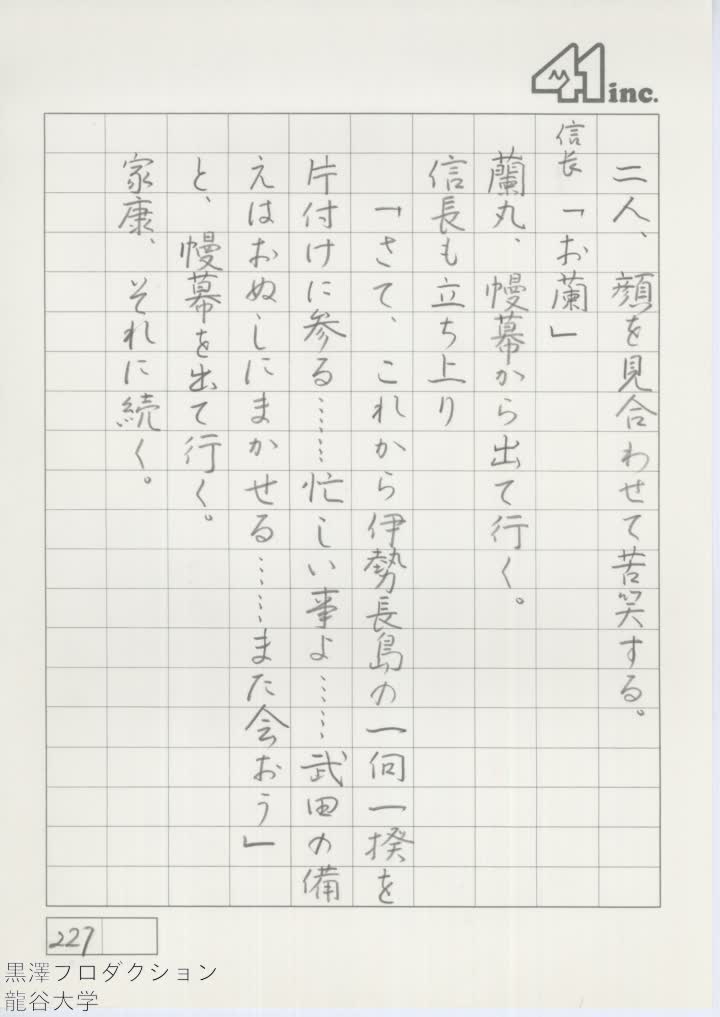 41 inc.
二人、顔を見合わせて苦笑する。
信長「お蘭」
蘭丸、幔幕から出て行く。
信長も立ち上り
「さて、これから伊勢長島の一向一揆を
片付けに参る……忙しい事よ……武田の備
えはおぬしにまかせる……また会おう」
と、幔幕を出て行く。
家康、それに続く。
227
黒澤フロダクション
龍谷大学